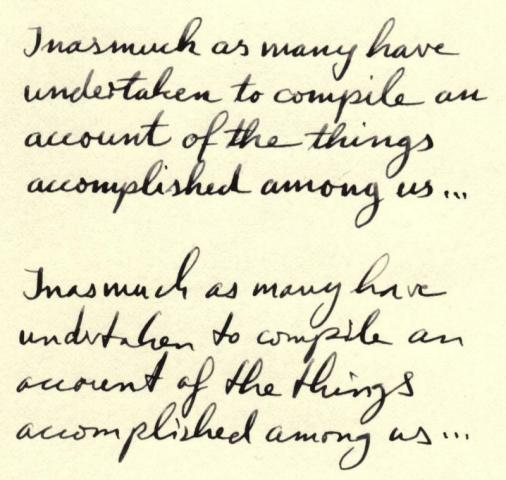 Inasmuch as many have
undertaken to compile an
account of the things
accomplished among us...
Inasmuch as many have
undertaken to compile an
account of the things
accomplished among us...